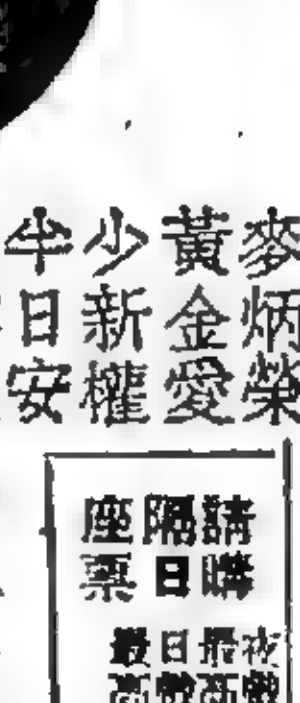 麥炳榮
黃金愛
少新權
半日安
請購
隔日
座票
夜
最
日
最